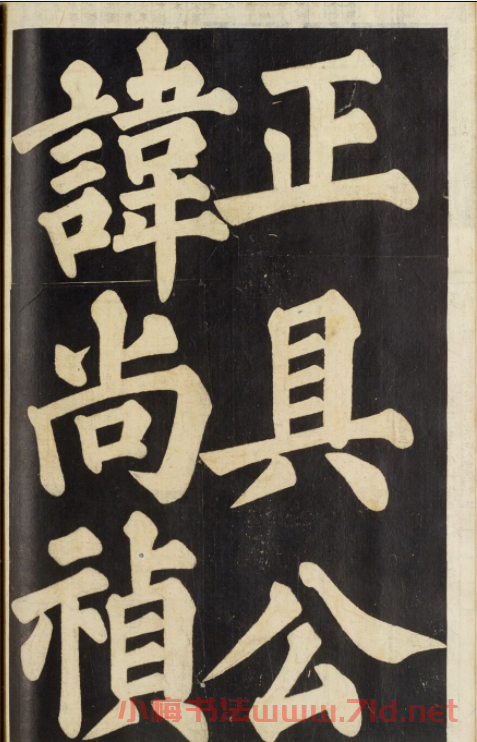 正具公
諱尚禎
小梅书法www.7ld.net